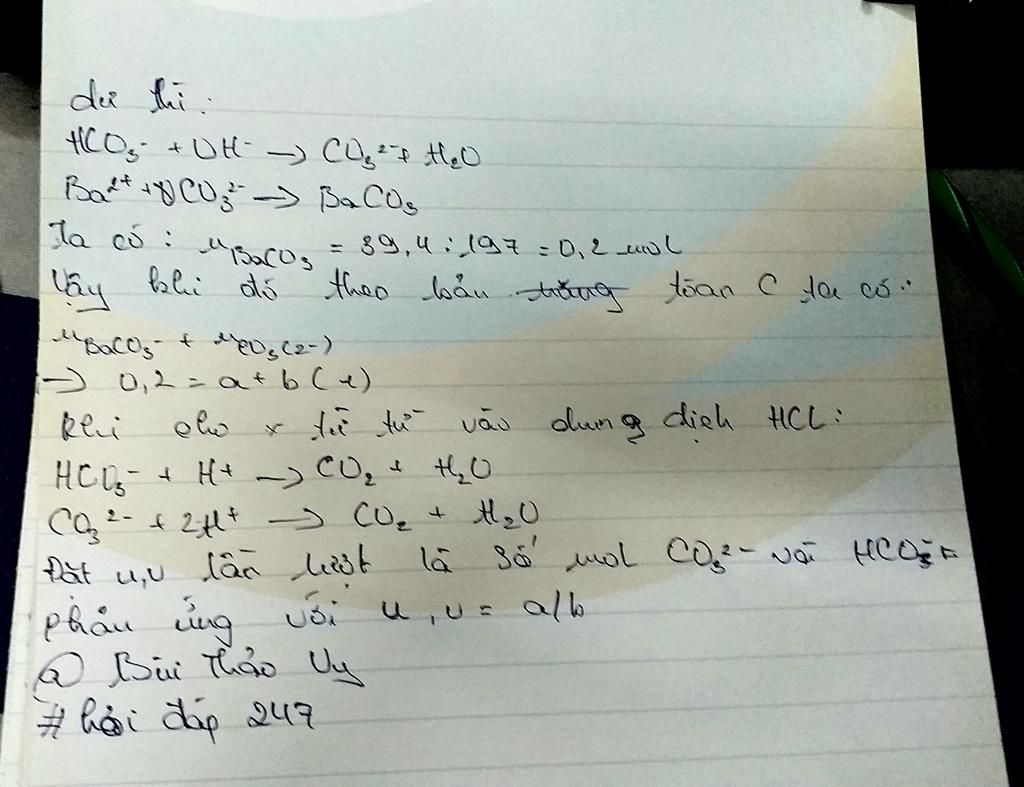 dư thì:
HCO₃⁻ + OH⁻ → CO₃²⁻ + H₂O
Ba²⁺ + CO₃²⁻ → BaCO₃
Ta có: nBaCO₃ = 39,4 : 197 = 0,2 mol
Vậy khi đó theo bản toàn C ta có:
nBaCO₃⁻ + nCO₃(2-)
→ 0,2 = a + b (1)
Khi cho x từ từ vào dung dịch HCl:
HCO₃⁻ + H⁺ → CO₂ + H₂O
CO₃²⁻ + 2H⁺ → CO₂ + H₂O
Đặt u,v lần lượt là số mol CO₃²⁻ và HCO₃⁻
phản ứng với u,v = a/b
@ Bùi Thảo Vy
# hỏi đáp 247